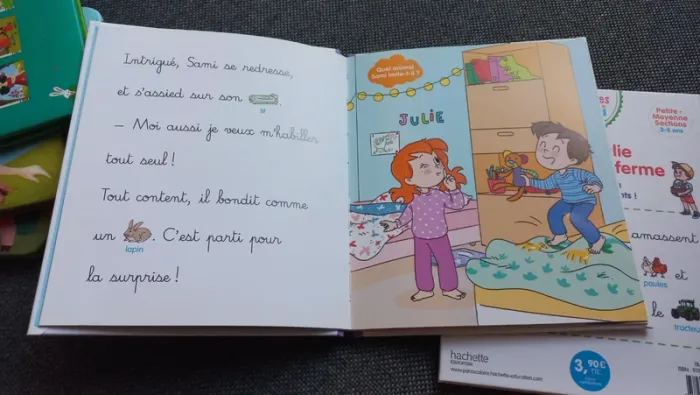 Intrigué, Sami se redresse,
et s'assied sur son
lit
— Moi aussi je veux m'habiller
tout seul !
Tout content, il bondit comme
un . C'est parti pour
lapin
la surprise !
Quel animal
Sami imite-t-il ?
JULIE
Petite-
Moyenne
Sections
3-5 ans
lie
ferme
ts !
amassent
et
poules
le
tracteur
hachette
ÉDUCATION
3,90 €